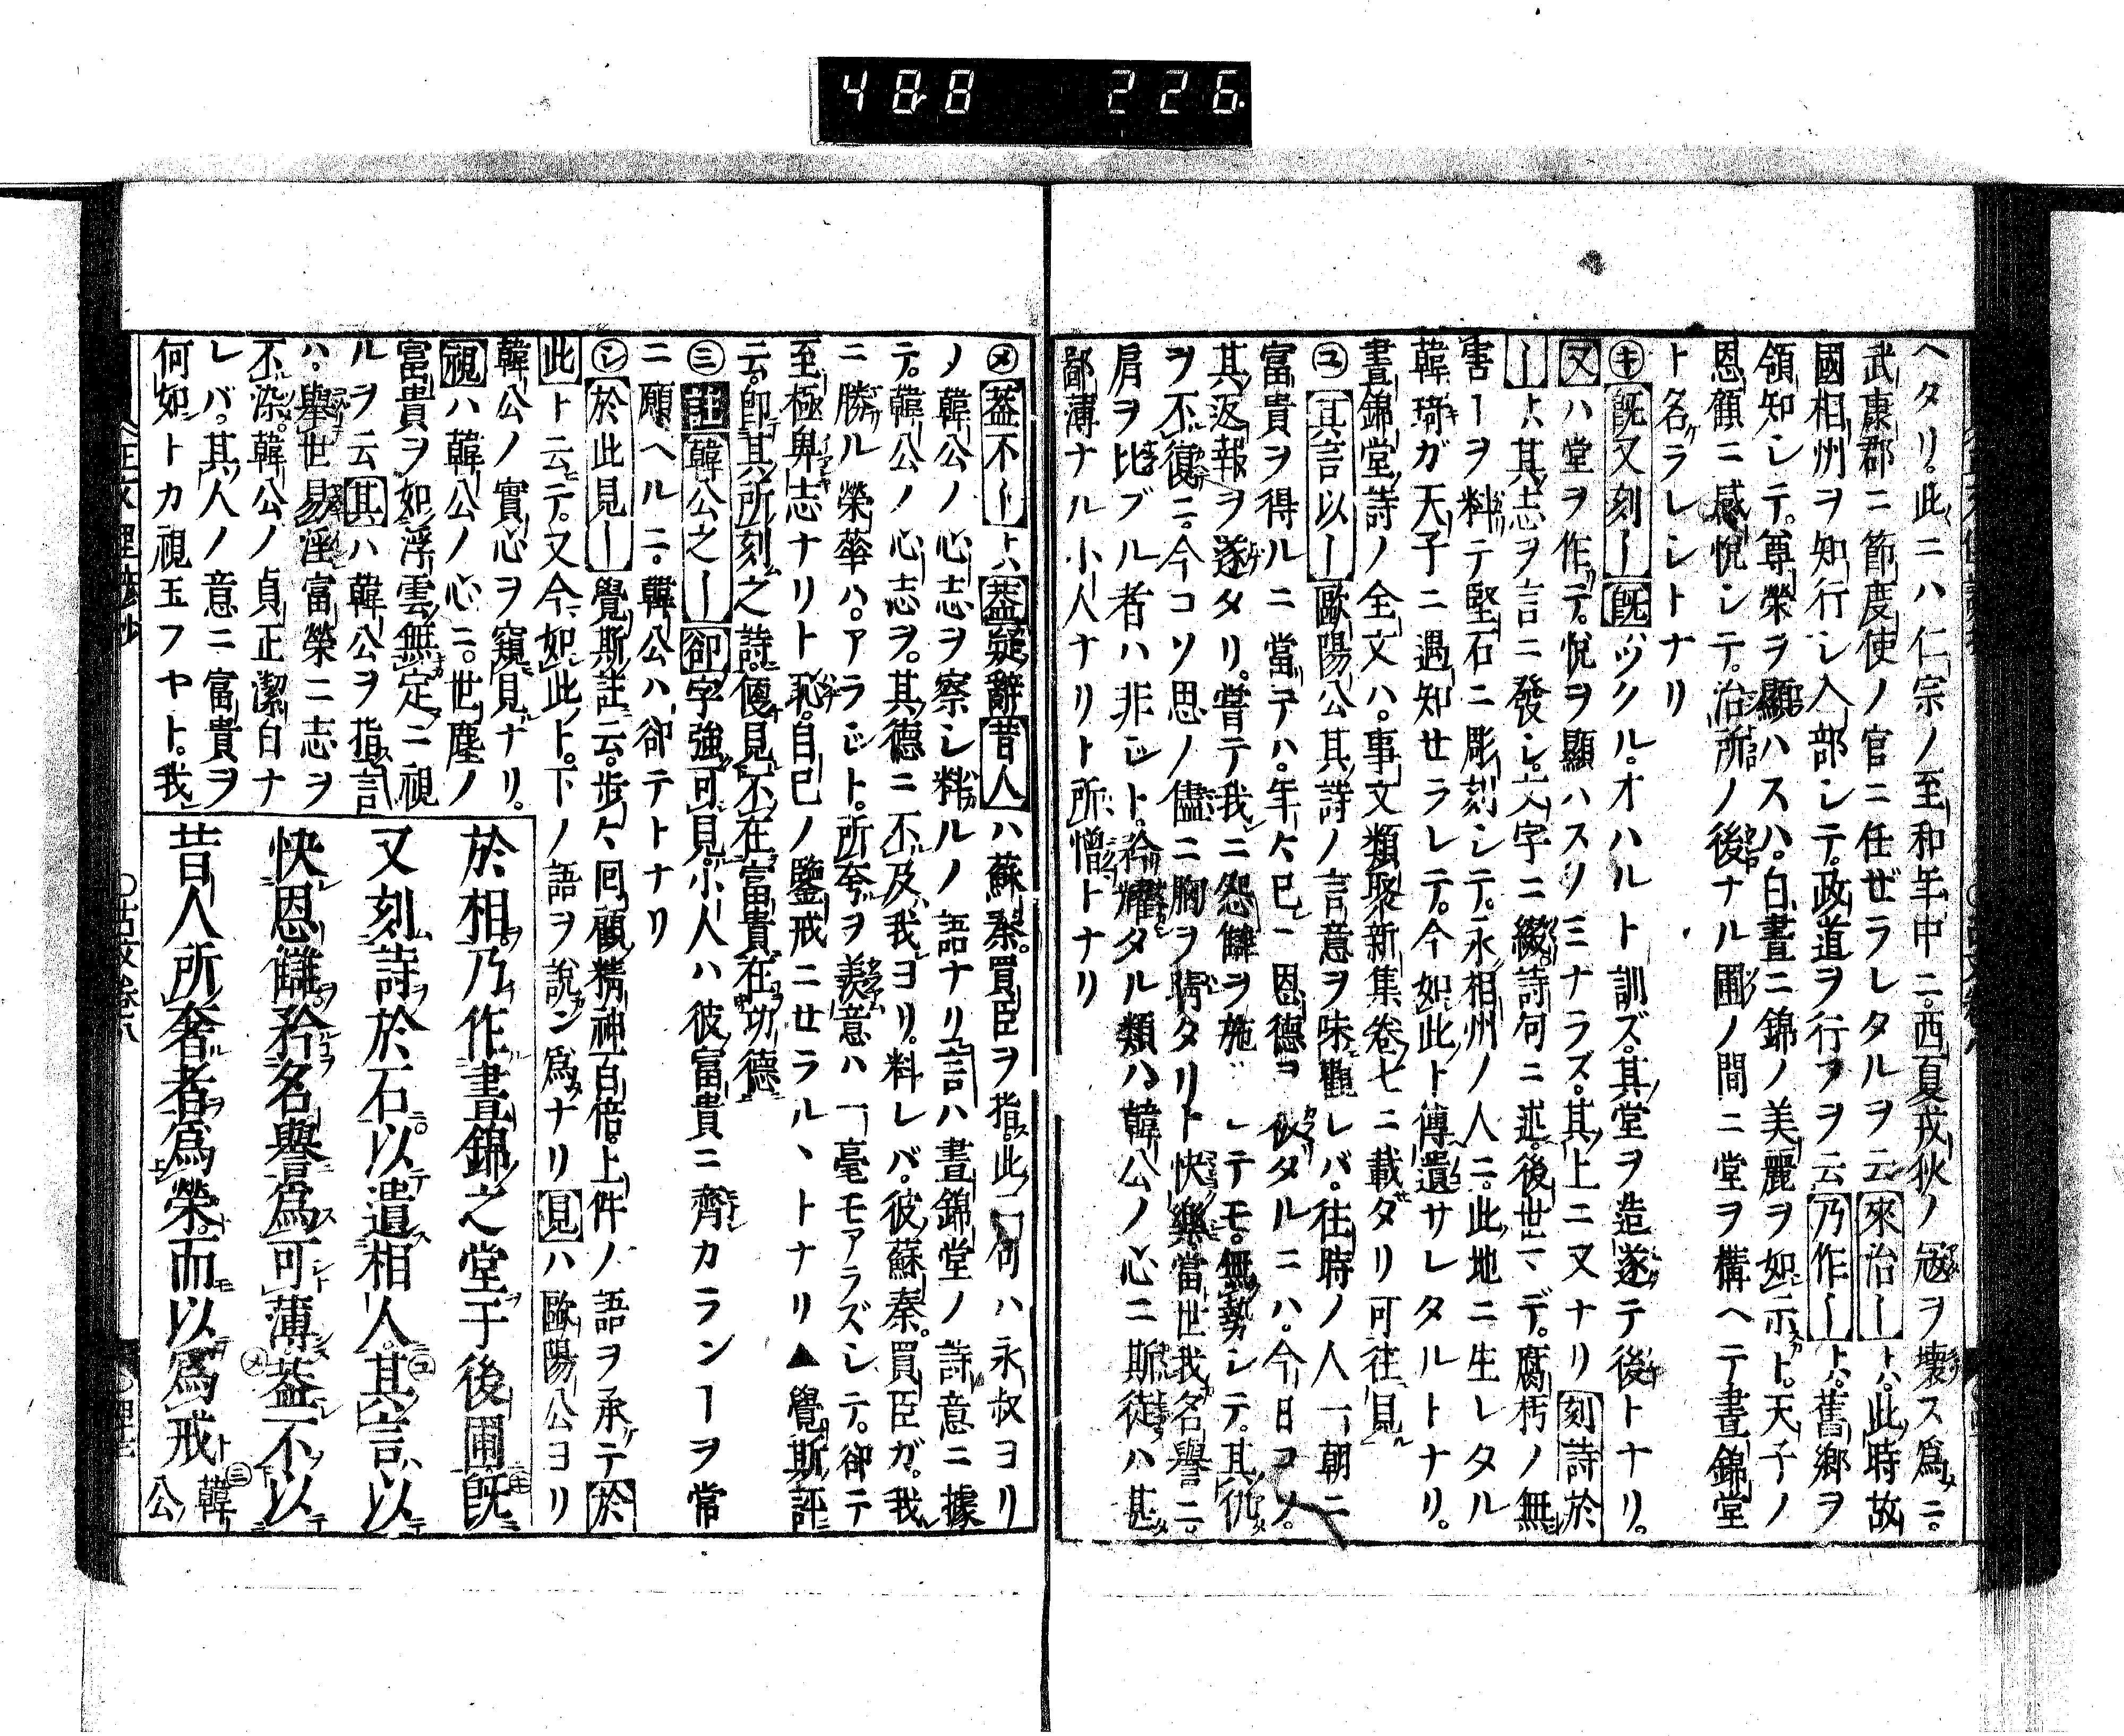 488 226
ヘタリ。此ニハ仁宗ノ至和年中ニ。西夏戎狄ノ冦ヲ壞ス爲ニ。
武康郡ニ節度使ノ官ニ任ゼラレタルヲ云來治ートハ。此時故
國相州ヲ知行シ入部シテ。政道ヲ行フヲ云乃作ートハ。舊郷ヲ
領知シテ。尊榮ヲ顯ハスハ。白晝ニ錦ノ美麗ヲ如示ト。天子ノ
恩顧ニ感悦シテ。治所ノ後ナル圃ノ間ニ堂ヲ構ヘテ晝錦堂
ト名ラレシトナリ
㋖既又刻ー既ハツクル。オハルト訓ズ。其堂ヲ造遂テ後トナリ。
又ハ堂ヲ作テ。悦ヲ顯ハスノミナラズ。其上ニ又ナリ刻詩於
ートハ其志ヲ言ニ發シ。文字ニ綴詩何ニ述。後世ニマデ。腐朽ノ無
害ーヲ料テ堅石ニ彫刻シテ。永相州ノ人ニ。此地ニ生レタル
韓琦ガ天子ニ遇知セラレテ。今如此ト傳遺サレタルトナリ。
晝錦堂詩ノ全文ハ。事文類聚新集卷七ニ載タリ可往見
㋴其言以ー歐陽公其詩ノ言意ヲ味觀レバ。往時ノ人一朝ニ
富貴ヲ得ルニ當テハ。年々已ニ恩德ヲ伮タルニハ。今日コソ。
其返報ヲ遂タリ。嘗テ我ニ怨讎ヲ施シテモ。無勢シテ。其仇
ヲ不復ニ。今コソ思ノ儘ニ胸ヲ晴タリト快樂當世我名譽ニ。
肩ヲ比ブル者ハ非ジト。矜耀タル類ハ韓公ノ心ニ斯徒ハ甚
鄙薄ナル小人ナリト所憎トナリ
㋱葢不ートハ葢疑辭昔人ハ蘇秦。買臣ヲ指。此一句ハ永叔ヨリ
ノ韓公ノ心志ヲ察シ料ルノ語ナリ言ハ晝錦堂ノ詩意ニ據
テ。韓公ノ心志ヲ。其德ニ不及我ヨリ。料レバ。彼蘇秦。買臣ガ。我
ニ勝ル榮華ハ。アラジト。所夸ヲ美意ハ一毫モアラズシテ。却テ
至極卑志ナリト恥。自已ノ鑒戒ニセラルヽトナリ▲覺斯評
云。卽其所刻之詩。便見不在富貴。在功德
㋯註韓公之ー卻字強可見。小人ハ彼富貴ニ齊カランーヲ常
ニ願ヘルニ。韓公ハ卻テトナリ
㋛於此見ー覺斯註云。步々回顧精神百倍。上件ノ語ヲ承テ於
此ト云テ。又今如此ト。下ノ語ヲ說ン爲ナリ見ハ歐陽公ヨリ
韓公ノ實心ヲ窺見ナリ。
視ハ韓公ノ心ニ。世塵ノ
富貴ヲ如浮雲無定ニ視
ルヲ云其ハ韓公ヲ指言
ハ。擧世易淫富榮ニ志ヲ
不染。韓公ノ貞正潔白ナ
レバ。其人ノ意ニ富貴ヲ
何如トカ視玉フヤト。我
於相。乃作晝錦之堂于後圃。既
又刻詩於石。以遺相人。其言以
快恩讎。矜名譽爲可薄。葢不以
昔人所奢者爲榮。而以爲戒韓公